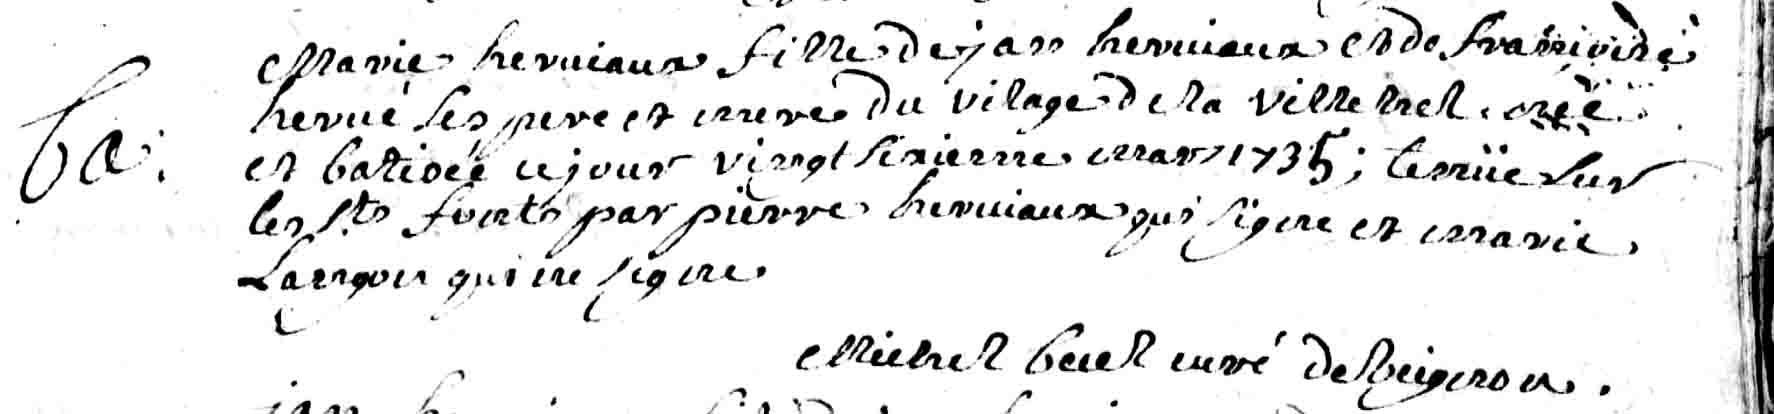 Marie heruiaux fille de jan heruiaux et de francoise
ba. herué ses pere et mere du vilage de la ville hel. née
et batisée ce jour vingt sixieme mars 1735; tenüe sur
les sts fonts par pierre heruiaux qui signe et marie
Langou qui ne signe
Michel curé de